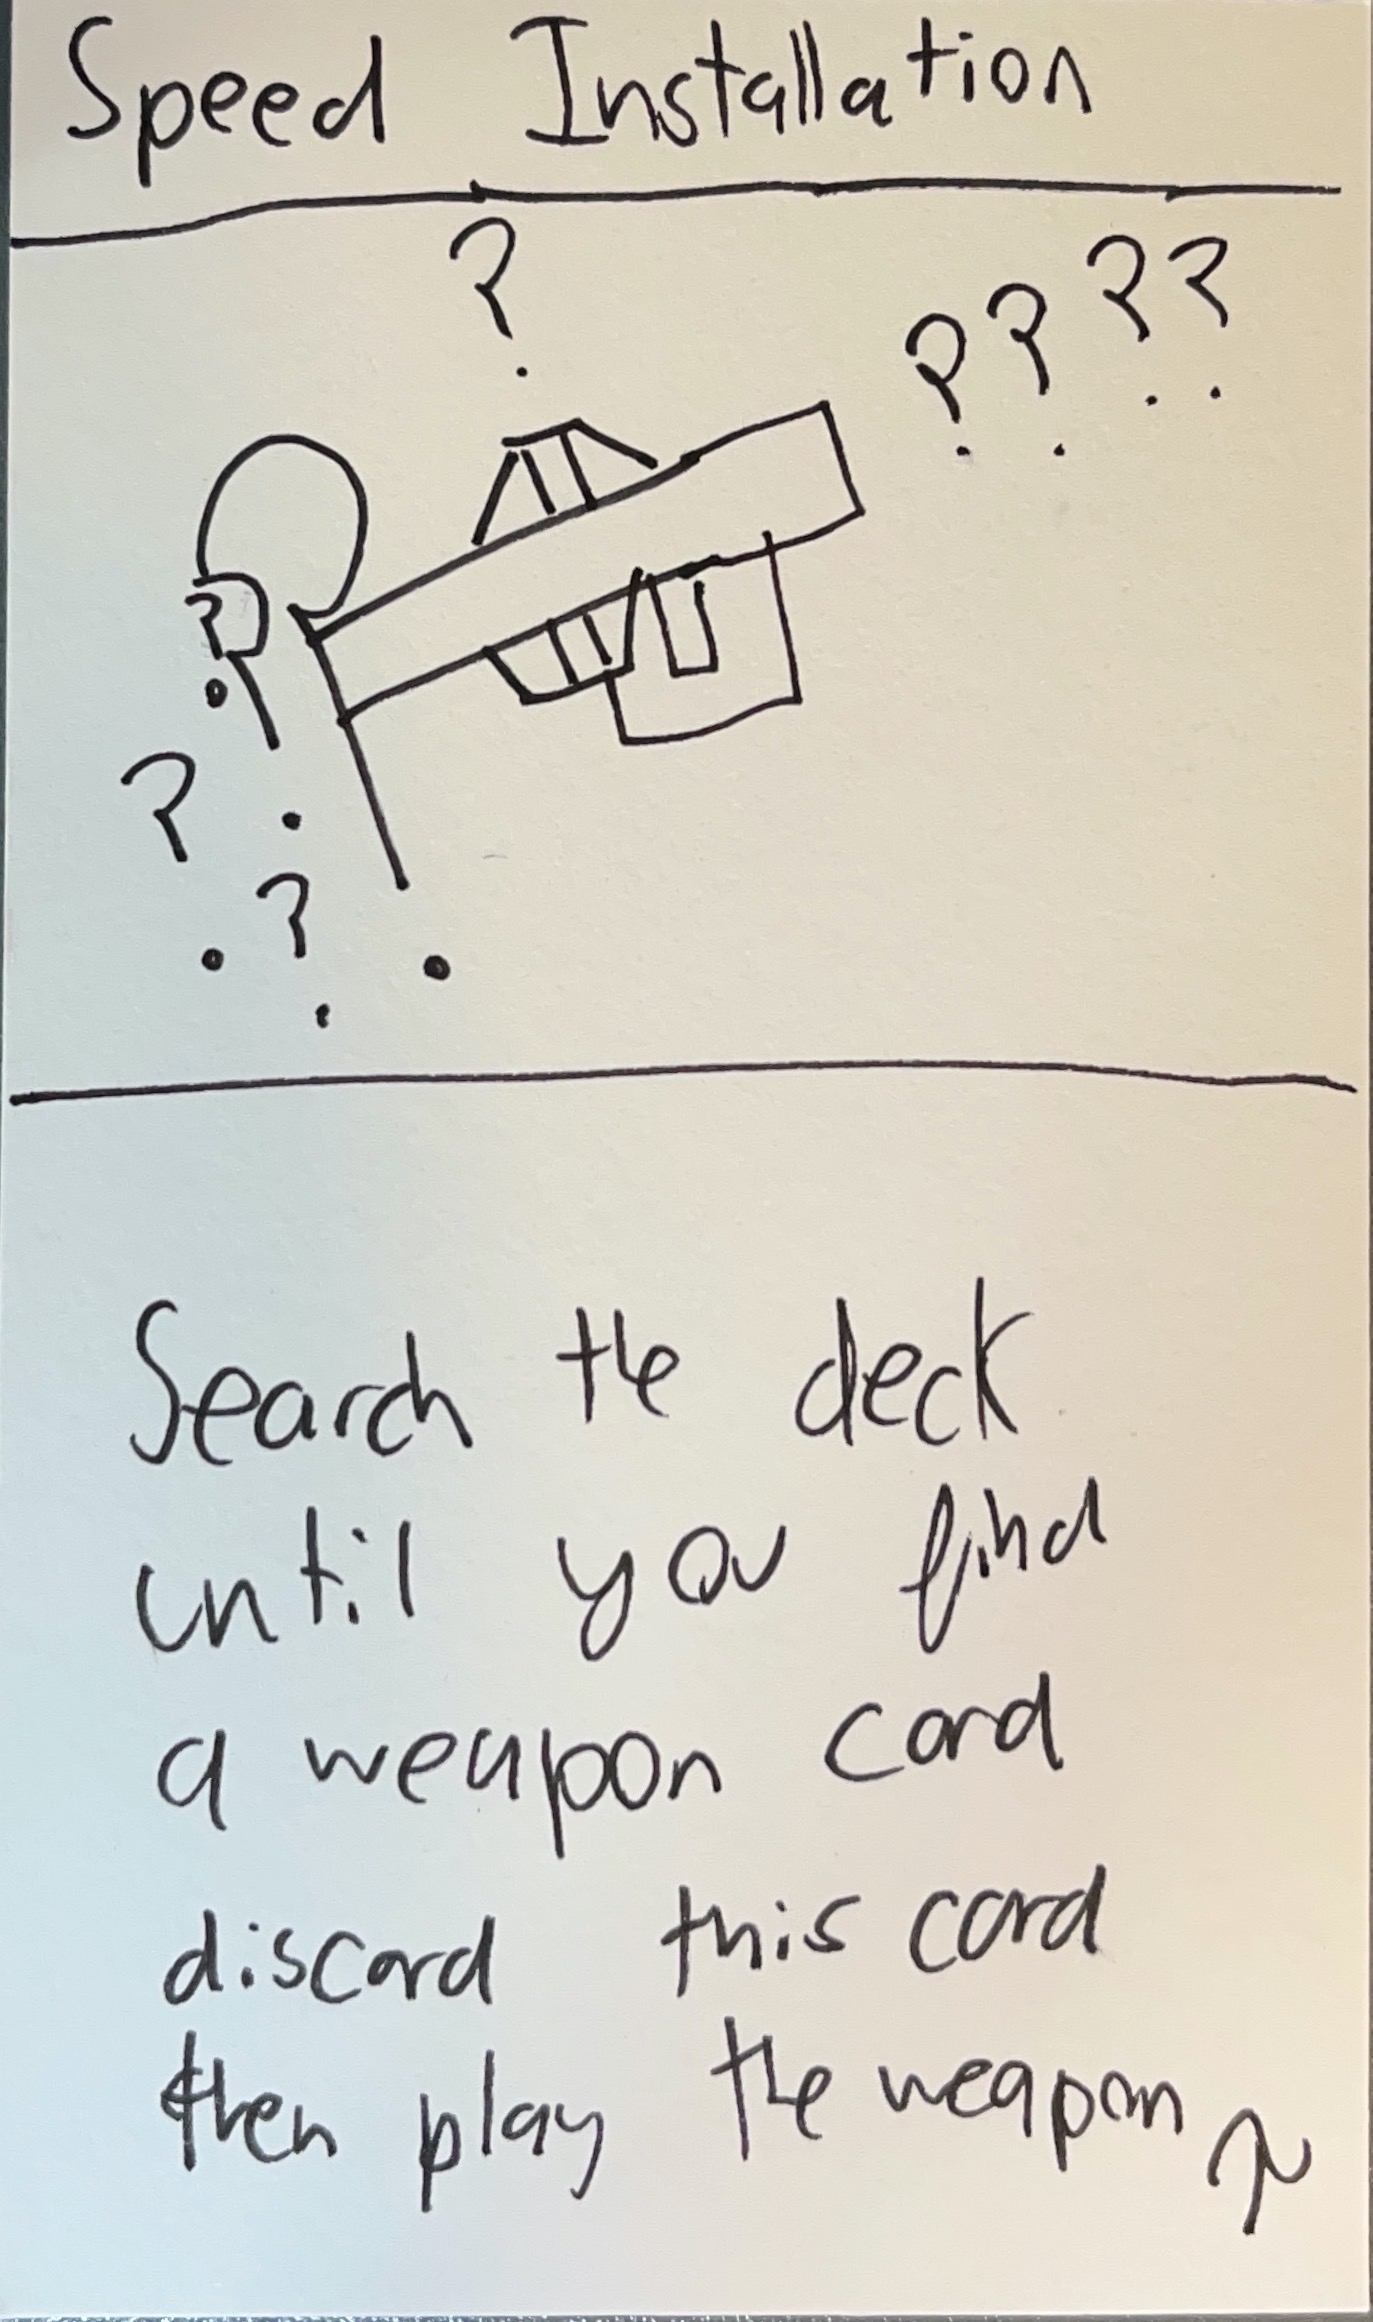 Speed Installation
?
? ? ? ?
?
?
?
Search the deck
until you find
a weapon card
discard this card
then play the weapon